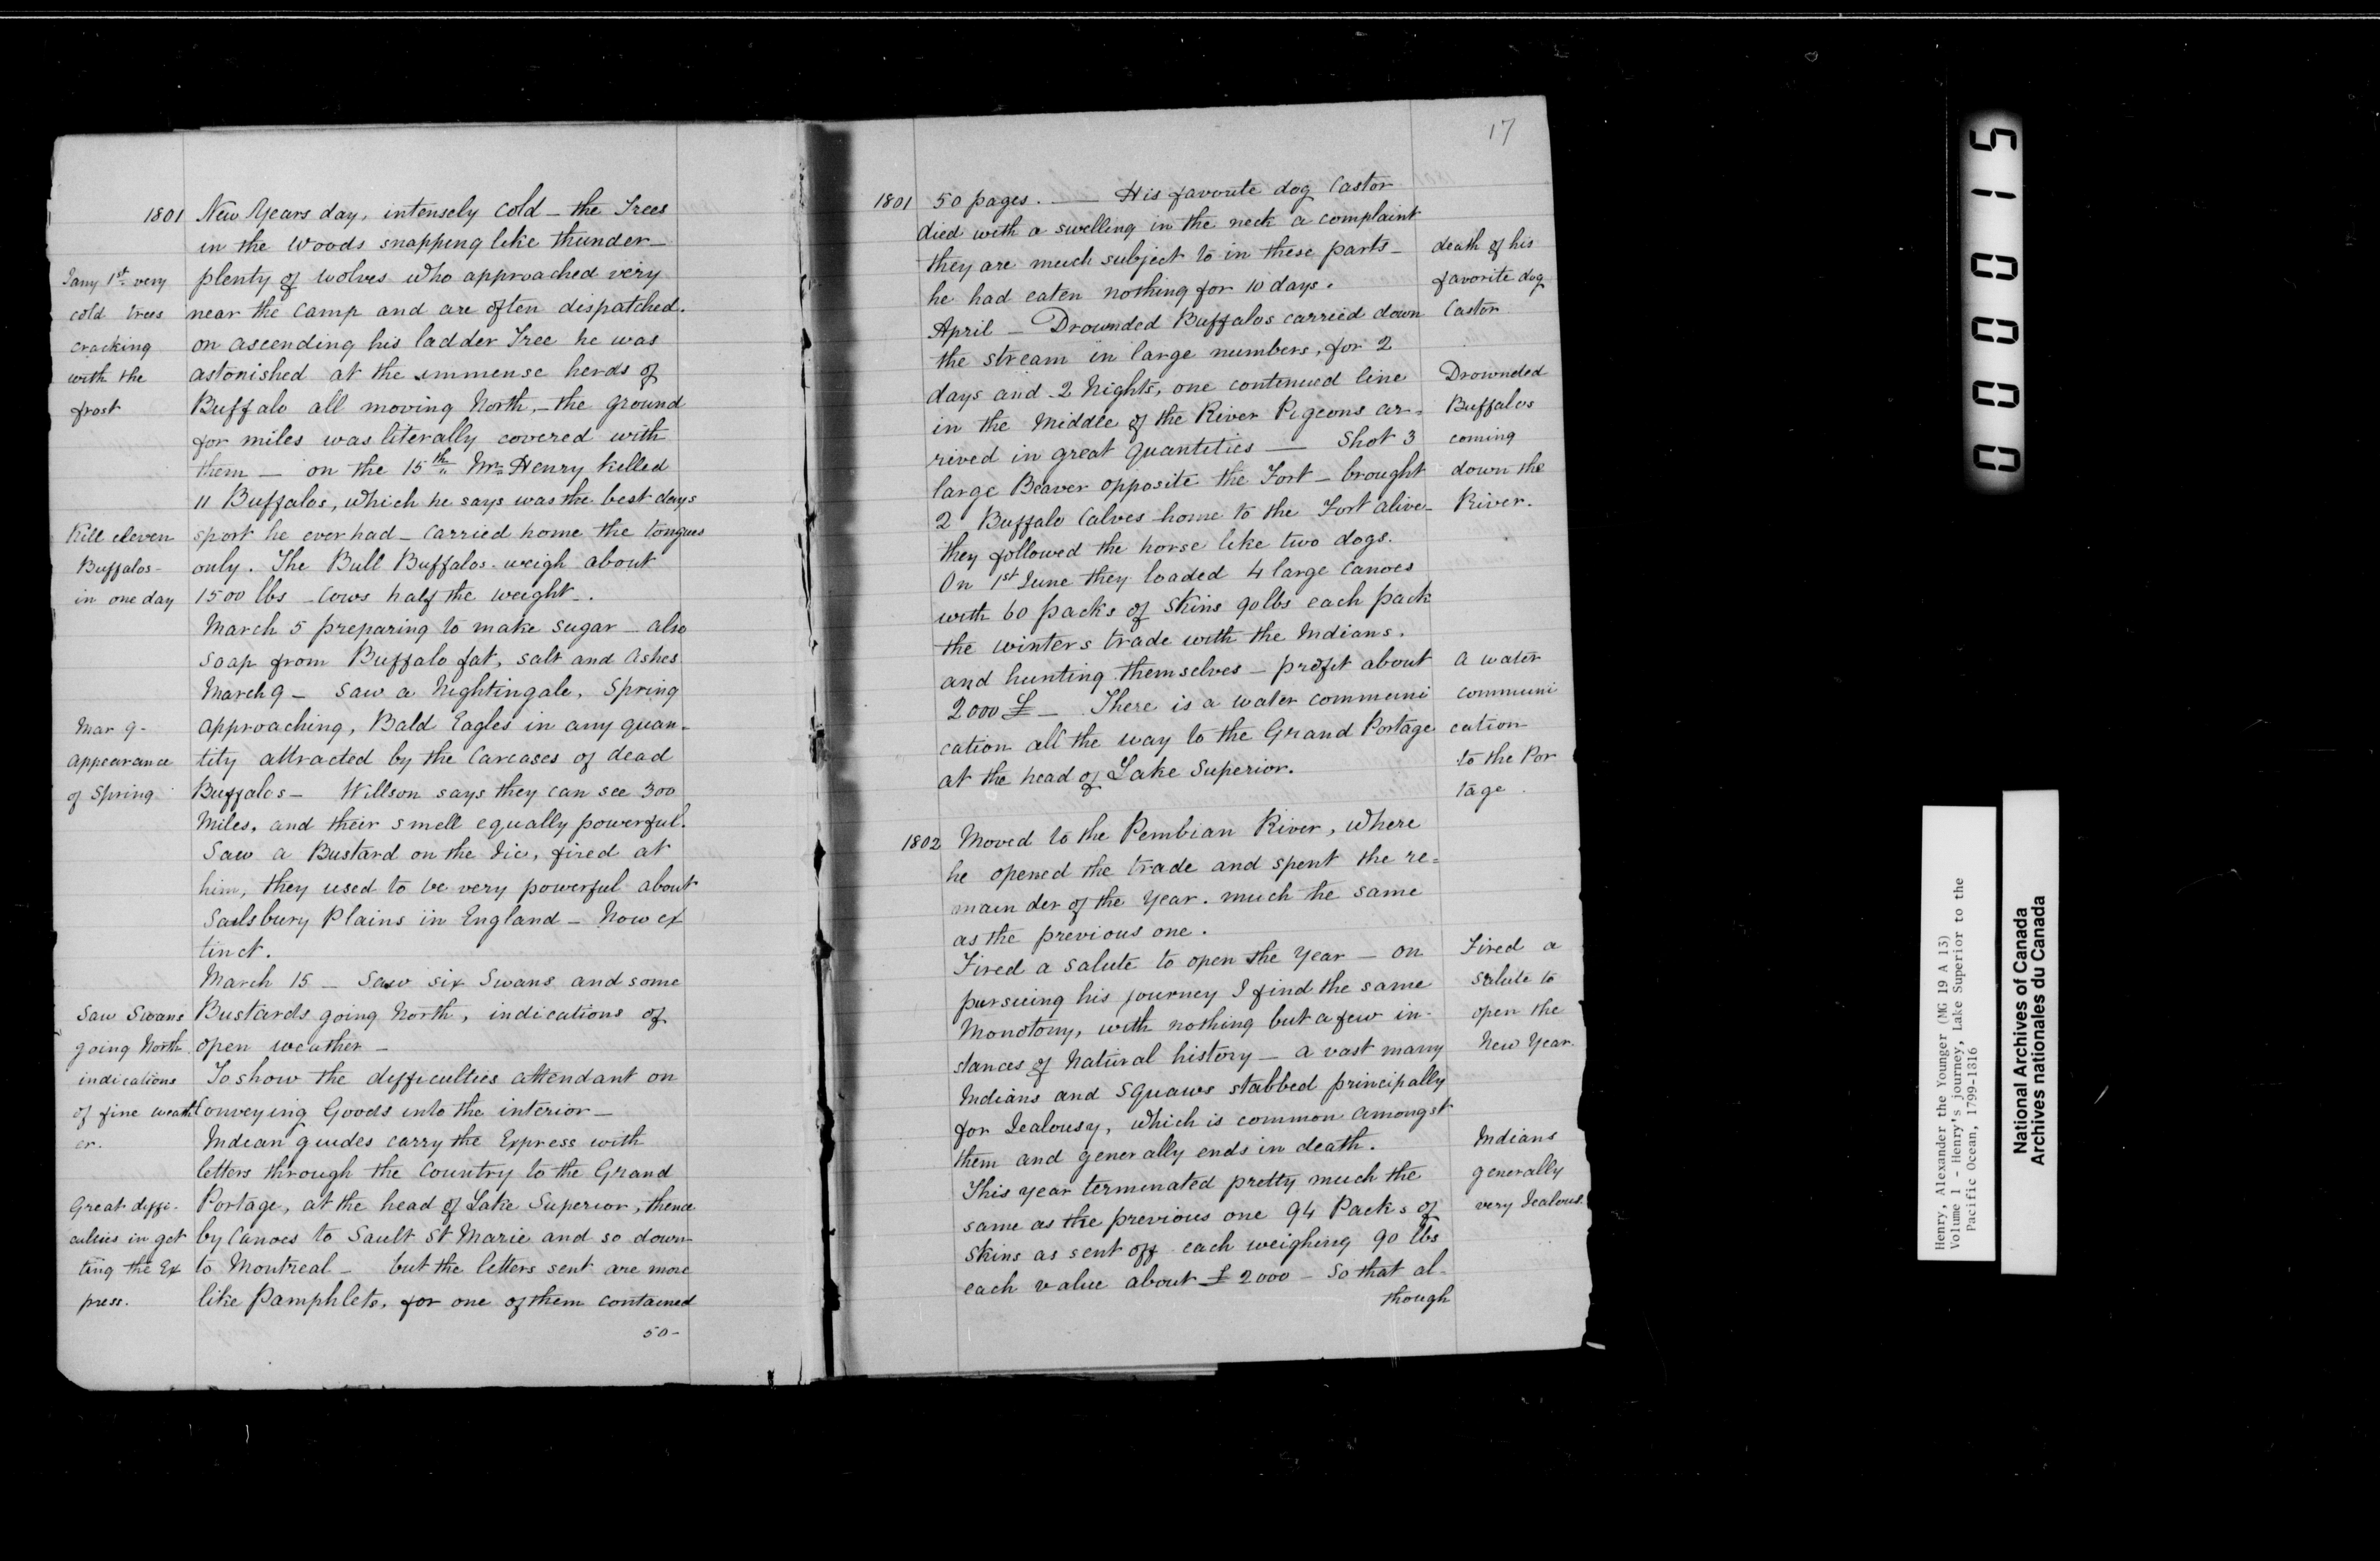 1801 New Years day, intensely cold – the Trees
in the Woods snapping like thunder –
plenty of wolves who approached very
near the Camp and are often dispatched.
on ascending his ladder Tree he was
astonished at the immense herds of
Buffalo all moving North, – the ground
for miles was literally covered with
them – on the 15th Mr Henry killed
11 Buffalos, which he says was the best days
sport he ever had – carried home the tongues
only. The Bull Buffalos weigh about
1500 lbs – Cows half the weight –.
March 5 preparing to make sugar – also
soap from Buffalo fat, salt and ashes
March 9 – saw a Nightingale, Spring
approaching, Bald Eagles in any quan-
tity attracted by the Carcases of dead
Buffalos – Willson says they can see 300
Miles, and their smell equally powerful.
Saw a Bustard on the Ice, fired at
him, they used to be very powerful about
Sailsbury Plains in England – Now ex
tinct.
March 15 – Saw six Swans and some
Bustards going North, indications of
open weather –
To show the difficulties attendant on
Conveying Goods into the interior –
Indian guides carry the Express with
letters through the Country to the Grand
Portage, at the head of Lake Superior, thence
by Canoes to Sault St Marie and so down
to Montreal – but the letters sent are more
like Pamphlets, for one of them contained
50 –
Jany 1st very
cold trees
cracking
with the
frost
Kill eleven
Buffalos –
in one day
Mar 9 –
appearance
of Spring
Saw Swans
going North
indications
of fine weath
er.
Great diffi-
culties in get
ting the Ex
press.
17
1801 50 pages. — His favorite dog Castor
died with a swelling in the neck a complaint
they are much subject to in these parts –
he had eaten nothing for 10 days.
April – Drownded Buffalos carried down
the stream in large numbers, for 2
days and 2 Nights, one continued line
in the Middle of the River Pigeons ar=
rived in great Quantities — Shot 3
large Beaver opposite the Fort – brought
2 Buffalo Calves home to the Fort alive –
they followed the horse like two dogs.
On 1st June they loaded 4 large Canoes
with 60 packs of skins 90 lbs each pack
the winters trade with the Indians.
and hunting themselves – profit about
2000 £ – There is a water communi
cation all the way to the Grand Portage
at the head of Lake Superior.
1802 Moved to the Pembian River, where
he opened the trade and spent the re=
mainder of the Year. much the same
as the previous one.
Fired a salute to open the Year – on
pursuing his journey I find the same
Monotony, with nothing but a few in-
stances of Natural history – a vast many
Indians and Squaws stabbed principally
for Jealousy, which is common amongst
them and generally ends in death.
This year terminated pretty much the
same as the previous one 94 Packs of
skins as sent off each weighing 90 lbs
each value about £ 2000 – so that al-
though
death of his
favorite dog
Castor
Drownded
Buffalos
coming
down the
River.
a water
communi
cation
to the Por
tage.
Fired a
salute to
open the
New Year.
Indians
generally
very Jealous.
000015
Henry, Alexander the Younger (MG 19 A 13)
Volume 1 - Henry's journey, Lake Superior to the
Pacific Ocean, 1799-1816
National Archives of Canada
Archives nationales du Canada